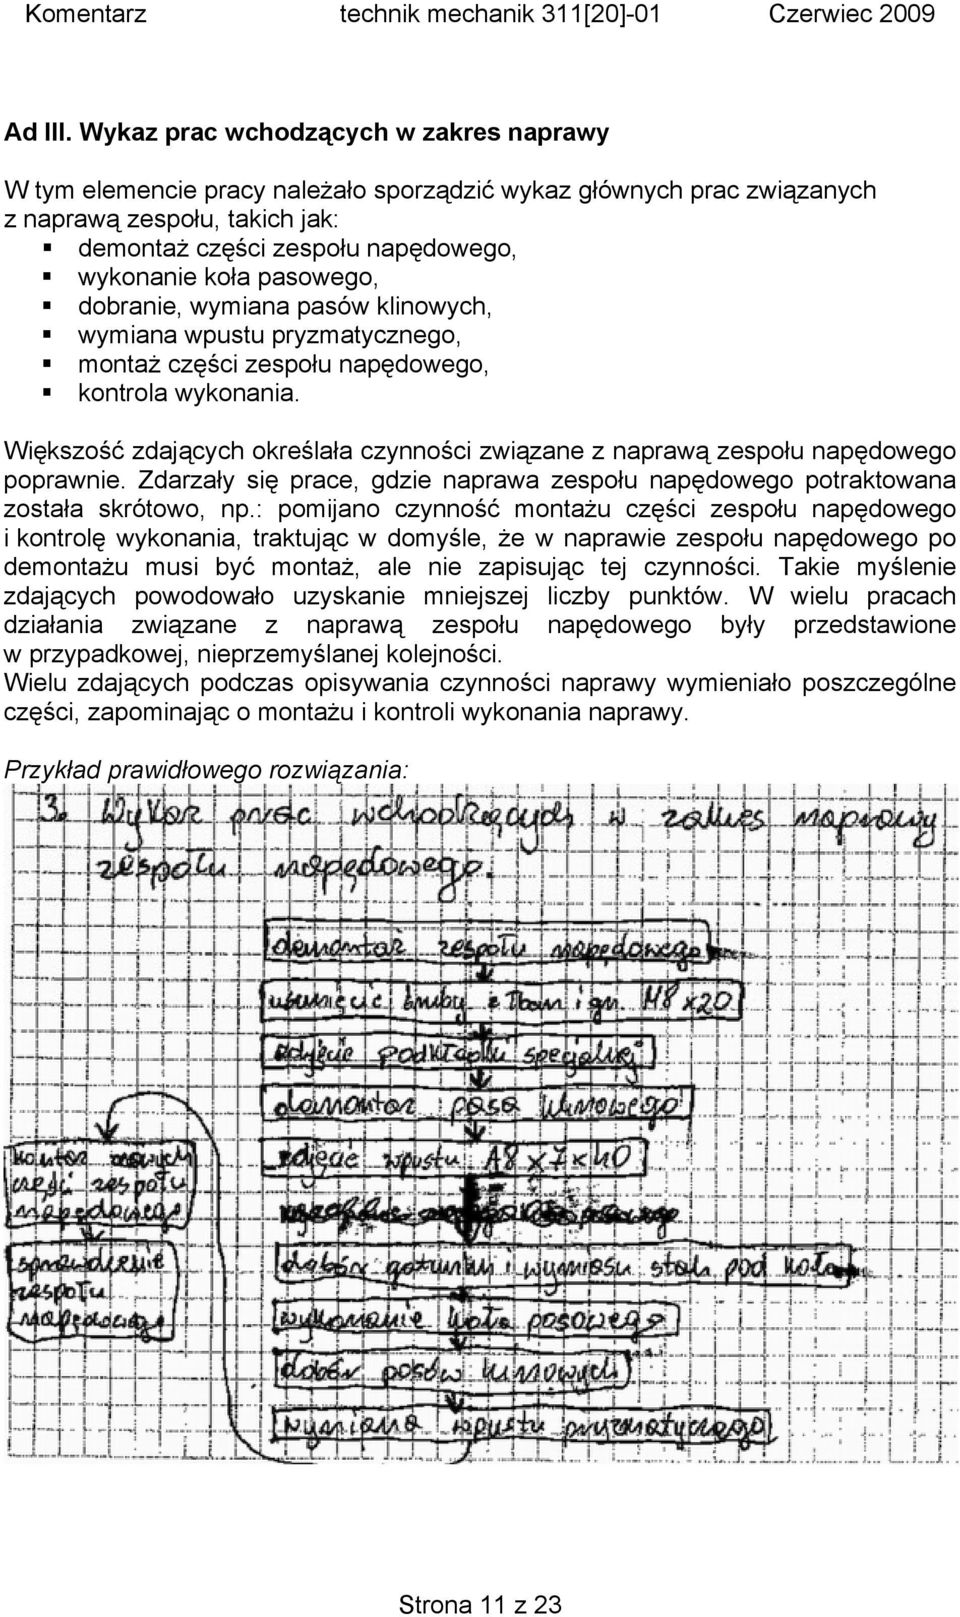 Komentarz technik mechanik 311[20]-01 Czerwiec 2009
Ad III. Wykaz prac wchodzących w zakres naprawy
W tym elemencie pracy należało sporządzić wykaz głównych prac związanych
z naprawą zespołu, takich jak:
▪ demontaż części zespołu napędowego,
▪ wykonanie koła pasowego,
▪ dobranie, wymiana pasów klinowych,
▪ wymiana wpustu pryzmatycznego,
▪ montaż części zespołu napędowego,
▪ kontrola wykonania.
Większość zdających określała czynności związane z naprawą zespołu napędowego
poprawnie. Zdarzały się prace, gdzie naprawa zespołu napędowego potraktowana
została skrótowo, np.: pomijano czynność montażu części zespołu napędowego
i kontrolę wykonania, traktując w domyśle, że w naprawie zespołu napędowego po
demontażu musi być montaż, ale nie zapisując tej czynności. Takie myślenie
zdających powodowało uzyskanie mniejszej liczby punktów. W wielu pracach
działania związane z naprawą zespołu napędowego były przedstawione
w przypadkowej, nieprzemyślanej kolejności.
Wielu zdających podczas opisywania czynności naprawy wymieniało poszczególne
części, zapominając o montażu i kontroli wykonania naprawy.
Przykład prawidłowego rozwiązania:
3. Wykaz prac wchodzących w zakres naprawy
zespołu napędowego.
demontaż zespołu napędowego
usunięcie śruby z łbem i gn. M8x20
zdjęcie podkładki specjalnej
demontaż pasa klinowego
zdjęcie wpustu A8x7x40
dobór gatunku i wymiaru stali pod koło
wykonanie koła pasowego
dobór pasów klinowych
wymiana wpustu pryzmatycznego
montaż nowych
części zespołu
napędowego
sprawdzenie
zespołu
napędowego
Strona 11 z 23